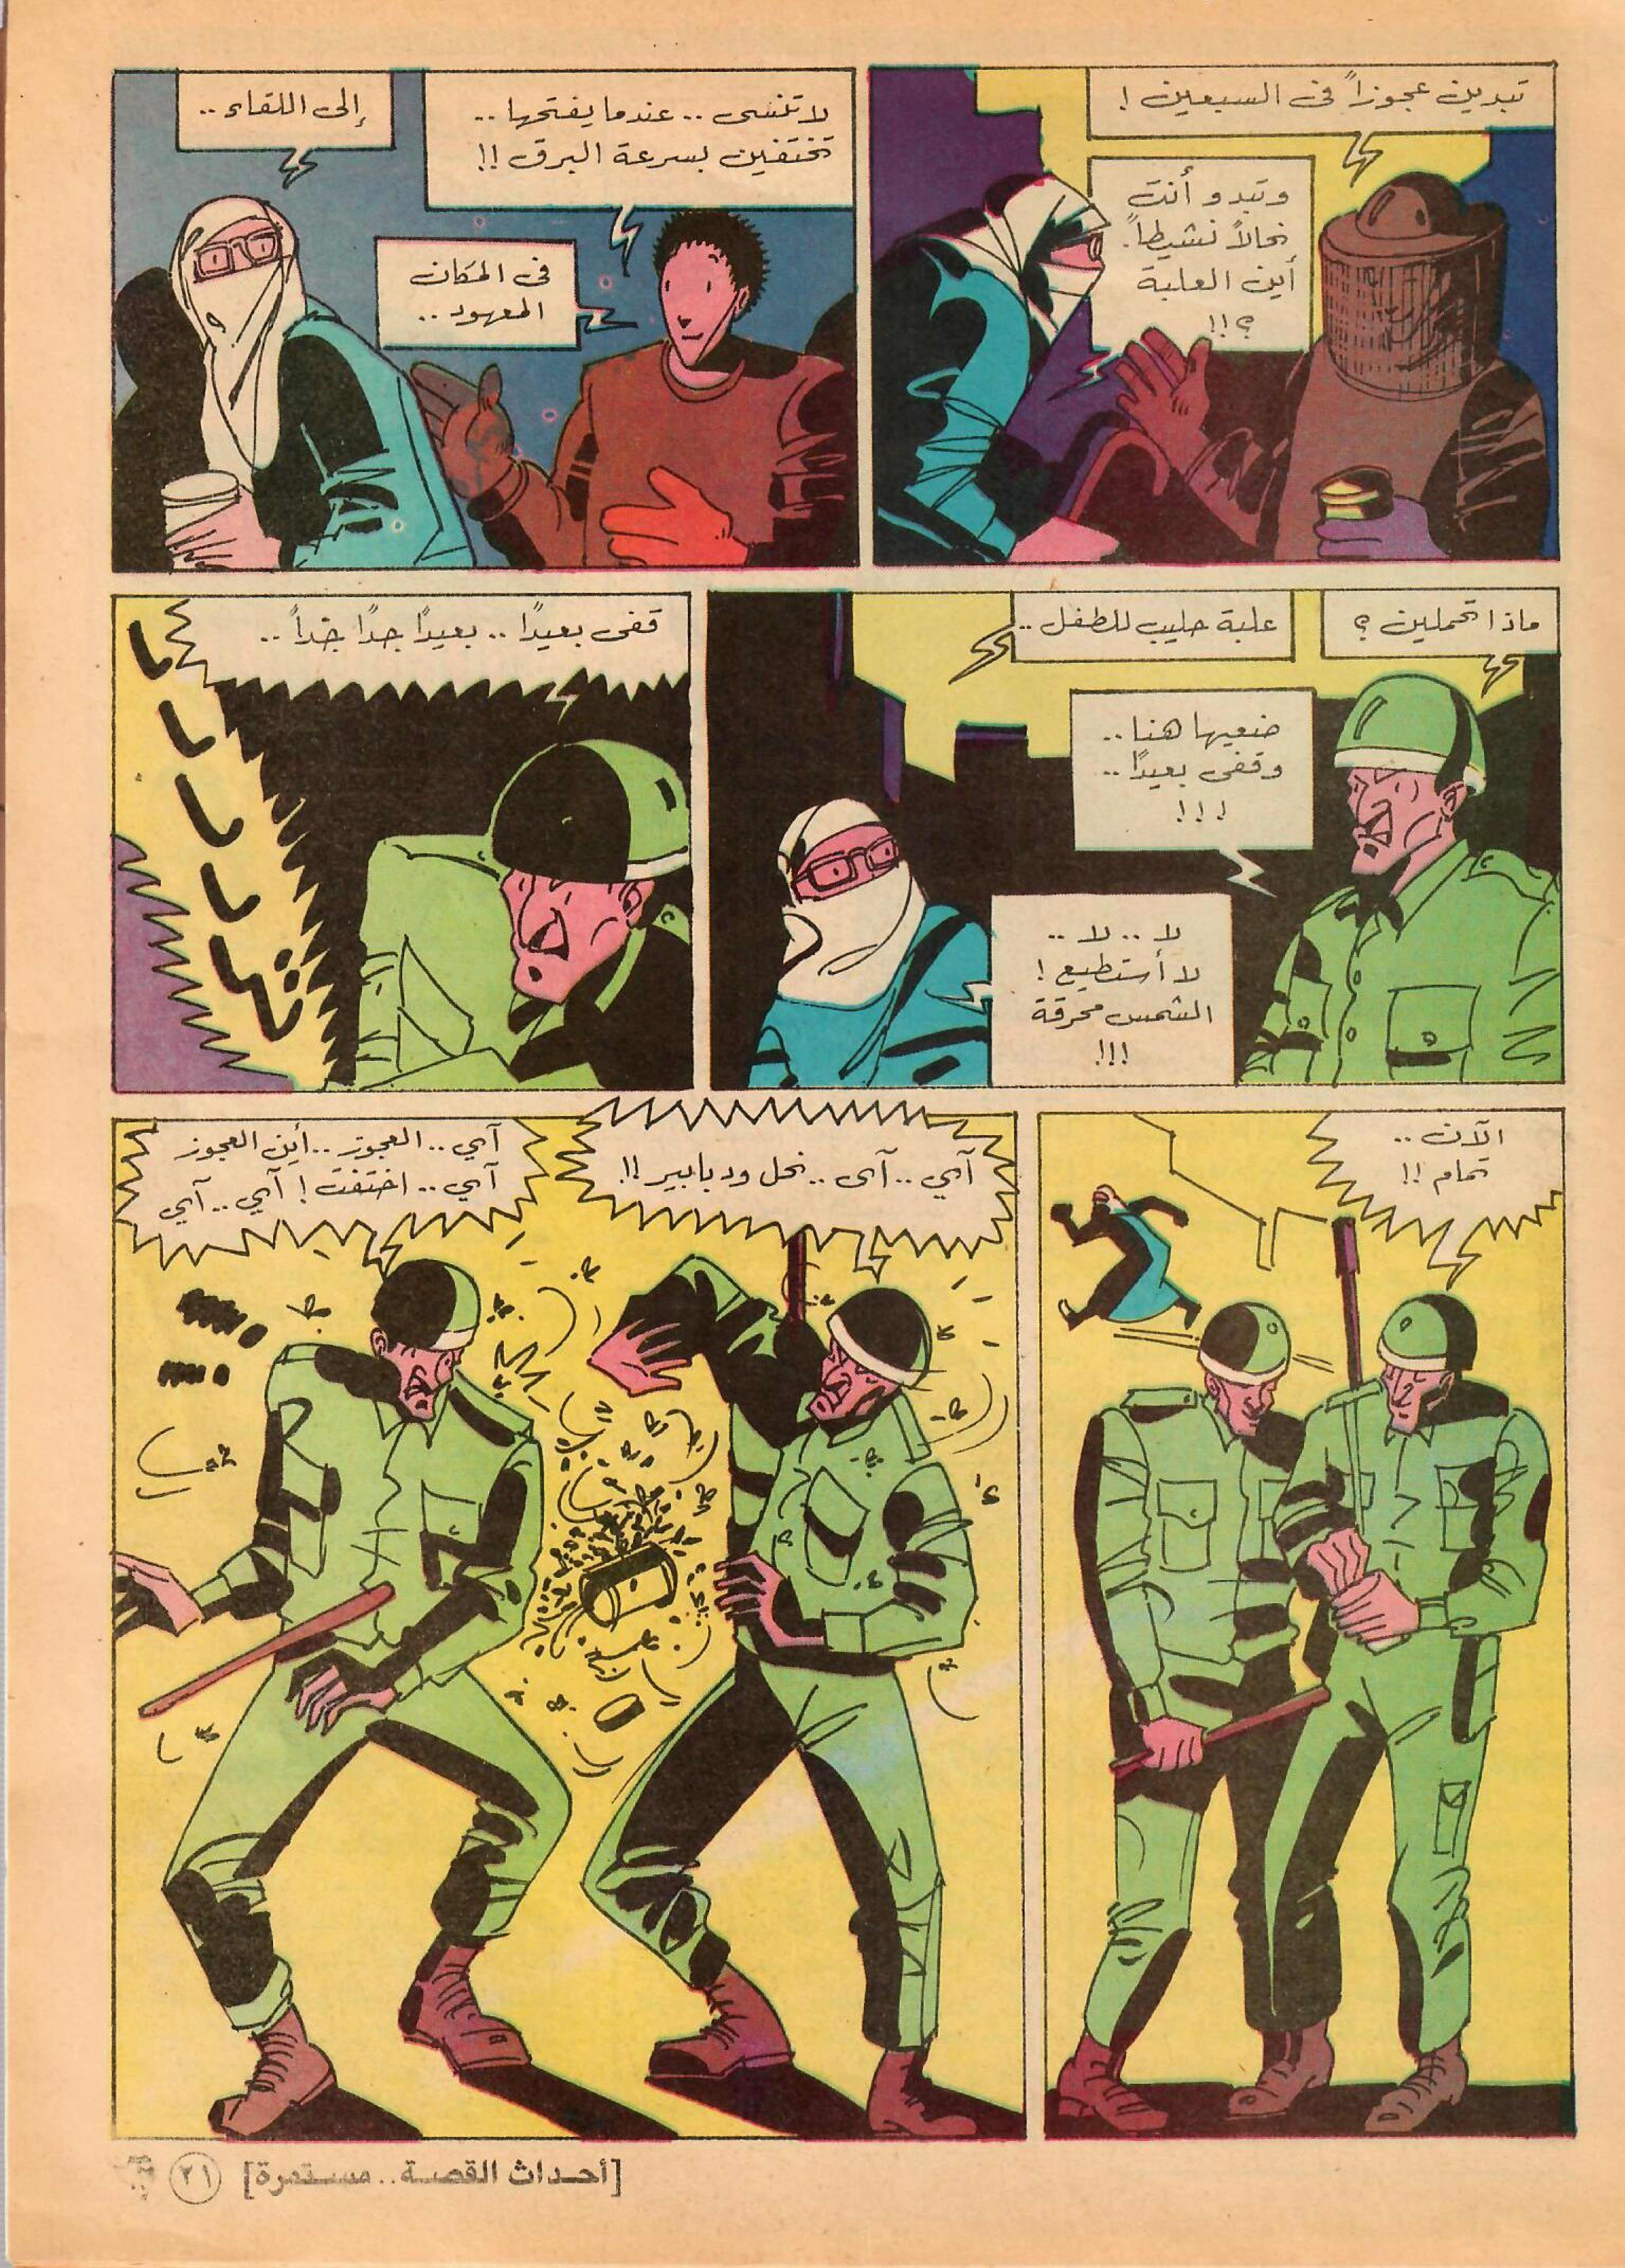 تبدين عجوزاً فى السبعين !
وتبدو أنت
نحالاً نشيطاً.
أين العلبة
؟!!
لا تنسى .. عندما يفتحها ..
تختفين بسرعة البرق !!
فى المكان
المعهود ..
إلى اللقاء ..
ماذا تحملين ؟
علبة حليب للطفل ..
ضعيها هنا ..
وقفى بعيدًا ..
!!!
لا .. لا ..
لا أستطيع !
الشمس محرقة
!!!
قفى بعيدًا .. بعيدًا جدًا جداً ..
الآن ..
تمام !!
آى .. آى .. نحل ودبابير !!
آى .. العجوز .. أين العجوز
آى .. اختفت ! آى .. آى
[أحداث القصة .. مستمرة]
٢١